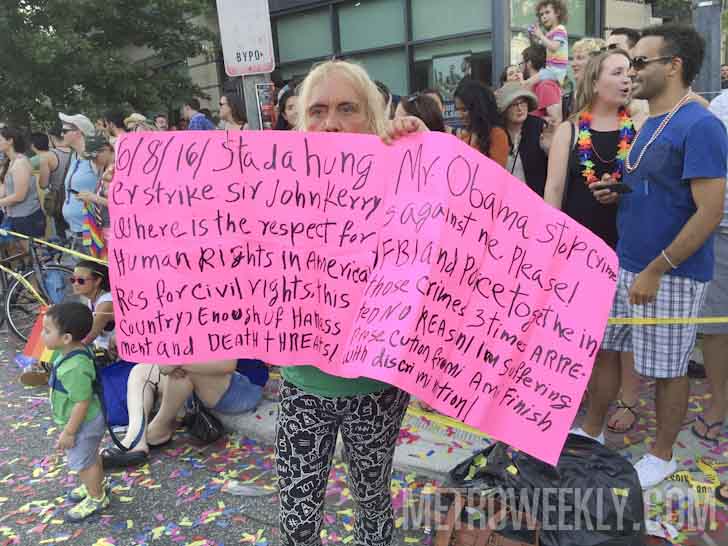 BYPD
6/8/16/ Stada hung
er strike Sir John Kerry
Where is the respect for
Human Rights in America
Res for civil rights, this
country? Enough of Harass
ment and DEATH tHREATS!
Mr. Obama stop crime
s against me, Please!
FBI and Police together in
those crimes 3 times ARRE-
TED NO REASN! I'm suffering
Prosecution from Am Finish
with discrimition!
METROWEEKLY.COM